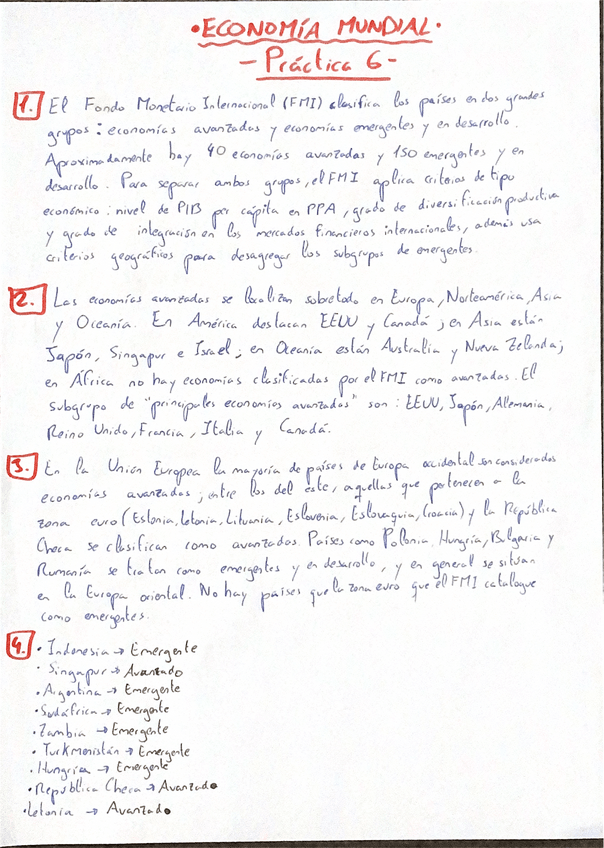 ·ECONOMÍA MUNDIAL·
- Práctica 6 -
1. El Fondo Monetario Internacional (FMI) clasifica los países en dos grandes
grupos: economías avanzadas y economías emergentes y en desarrollo.
Aproximadamente hay 40 economías avanzadas y 150 emergentes y en
desarrollo. Para separar ambos grupos, el FMI aplica criterios de tipo
económico: nivel de PIB per cápita en PPA, grado de diversificación productiva
y grado de integración en los mercados financieros internacionales, además usa
criterios geográficos para desagregar los subgrupos de emergentes.
2. Las economías avanzadas se localizan sobretodo en Europa, Norteamérica, Asia
y Oceanía. En América destacan EEUU y Canadá; en Asia están
Japón, Singapur e Israel; en Oceanía están Australia y Nueva Zelanda;
en África no hay economías clasificadas por el FMI como avanzadas. El
subgrupo de "principales economías avanzadas" son: EEUU, Japón, Alemania,
Reino Unido, Francia, Italia y Canadá.
3. En la Unión Europea la mayoría de países de Europa occidental son considerados
economías avanzados; entre los del este, aquellas que pertenecen a la
zona euro (Estonia, Letonia, Lituania, Eslovenia, Eslovaquia, Croacia) y la República
Checa se clasifican como avanzadas. Países como Polonia, Hungría, Bulgaria y
Rumanía se tratan como emergentes y en desarrollo, y en general se sitúan
en la Europa oriental. No hay países que la zona euro que el FMI catalogue
como emergentes.
4. · Indonesia → Emergente
· Singapur → Avanzado
· Argentina → Emergente
· Sudáfrica → Emergente
· Zambia → Emergente
· Turkmenistán → Emergente
· Hungría → Emergente
· República Checa → Avanzado
· Letonia → Avanzado